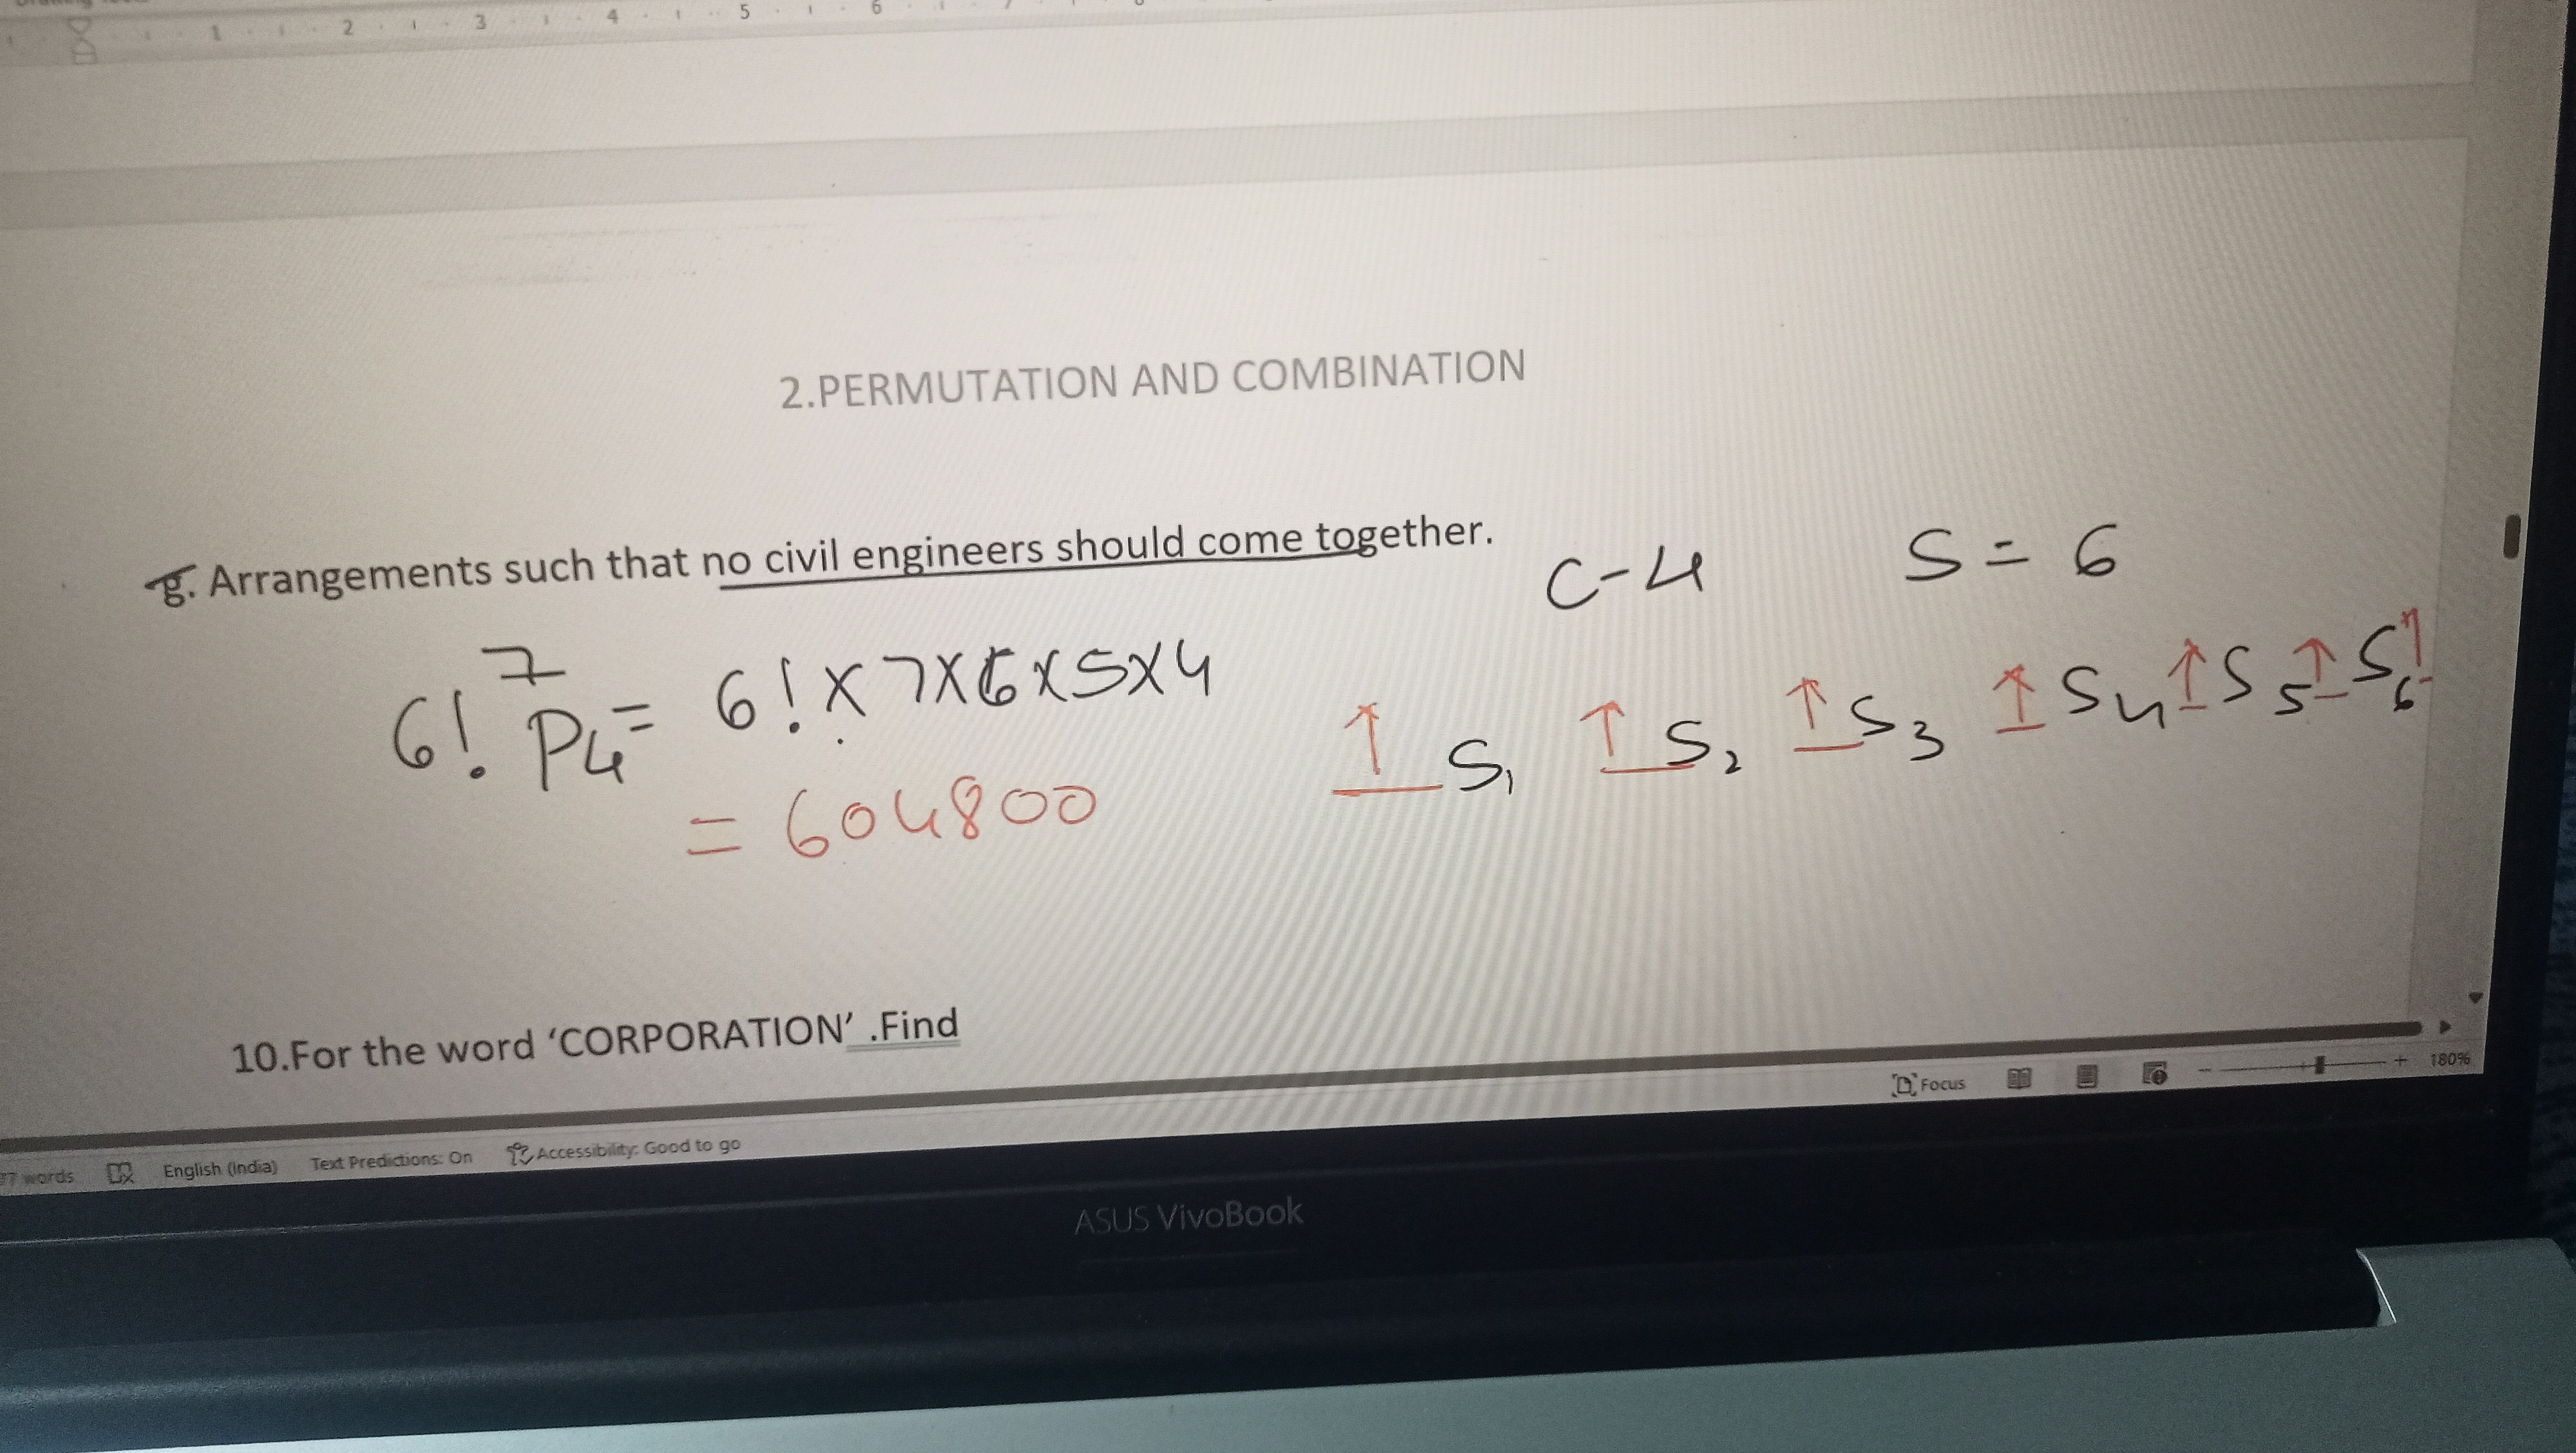 2.PERMUTATION AND COMBINATION
g. Arrangements such that no civil engineers should come together. C-4 S-6
6! ⁷P₄ = 6! x 7x6x5x4
= 604800
↑ S₁ ↑ S₂ ↑ S₃ ↑ S₄ ↑ S₅ ↑ S₆ ↑
10.For the word ‘CORPORATION’ .Find
words English (India) Text Predictions: On Accessibility: Good to go Focus - + 180%
ASUS VivoBook